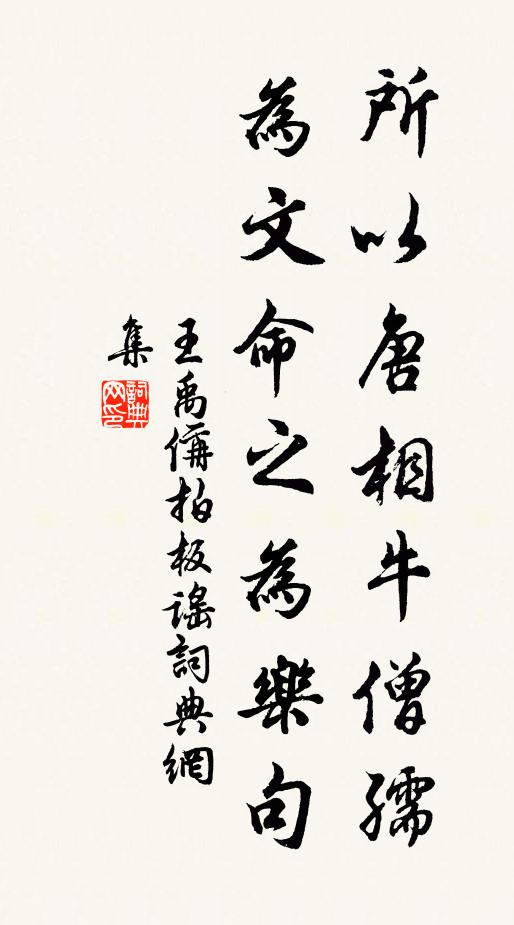 所以唐相牛僧孺
為文命之為樂句
王禹偁拍板謠詞典網
集
詞典網印